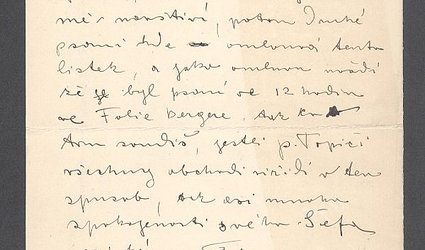 mě navštíví, potom druhé
psaní kde omlouvá tento
lístek, a jako omluvu uvádí
že byl psaní ve 12 hodin
ve Folie Bergere, tak
soudíš, jestli p. Topičí
všechny obchodí viřídí v ten
spusob, tak asi mnoho
spokojenosti svého Šefa